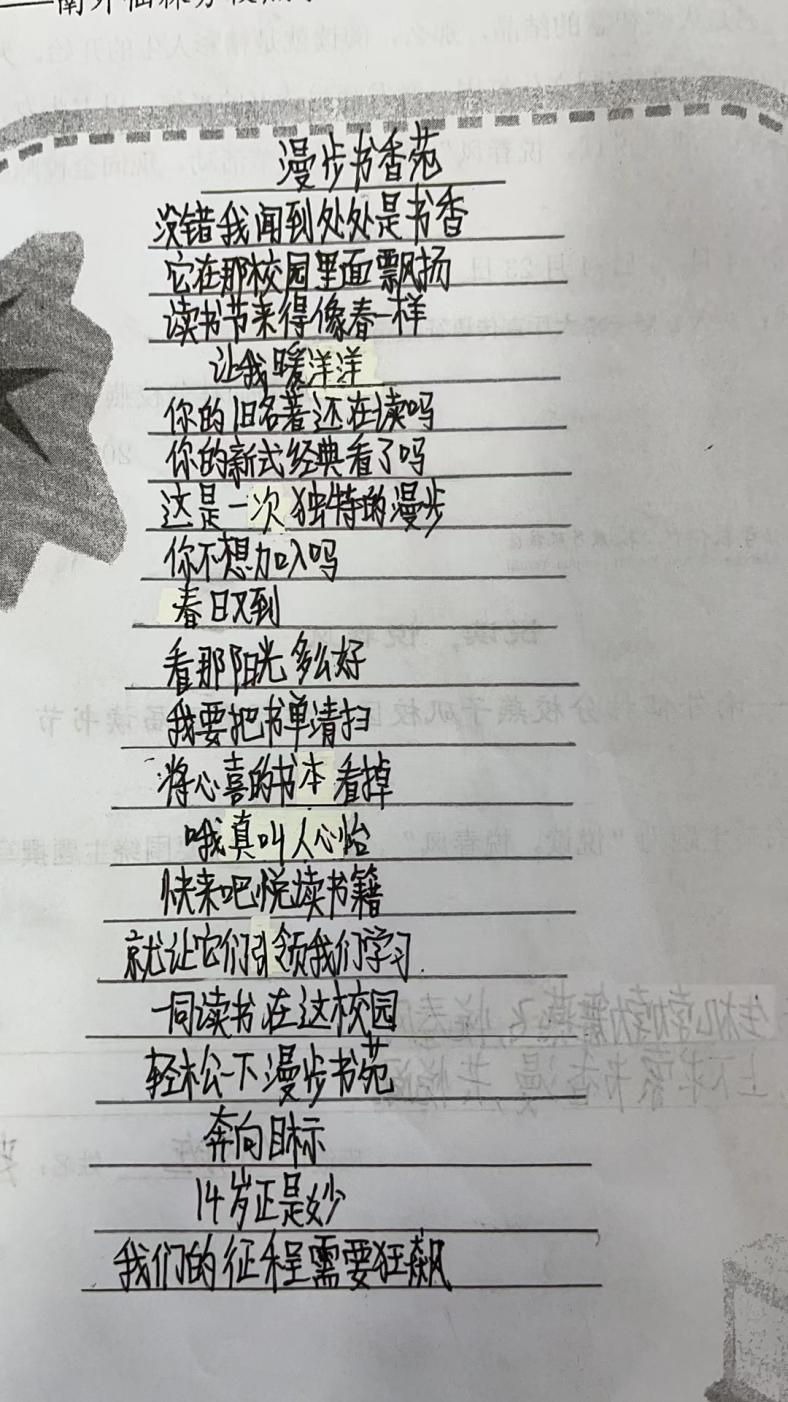 漫步书香苑
没错我闻到处处是书香
它在那校园里面飘扬
读书节来得像春一样
让我暖洋洋
你的旧名著还在读吗
你的新式经典看了吗
这是一次独特的漫步
你不想加入吗
春日又到
看那阳光多么好
我要把书单清扫
将心喜的书本看掉
哦真叫人心怡
快来吧悦读书籍
就让它们引领我们学习
一同读书在这校园
轻松一下漫步书苑
奔向目标
14岁正是妙
我们的征程需要狂飙